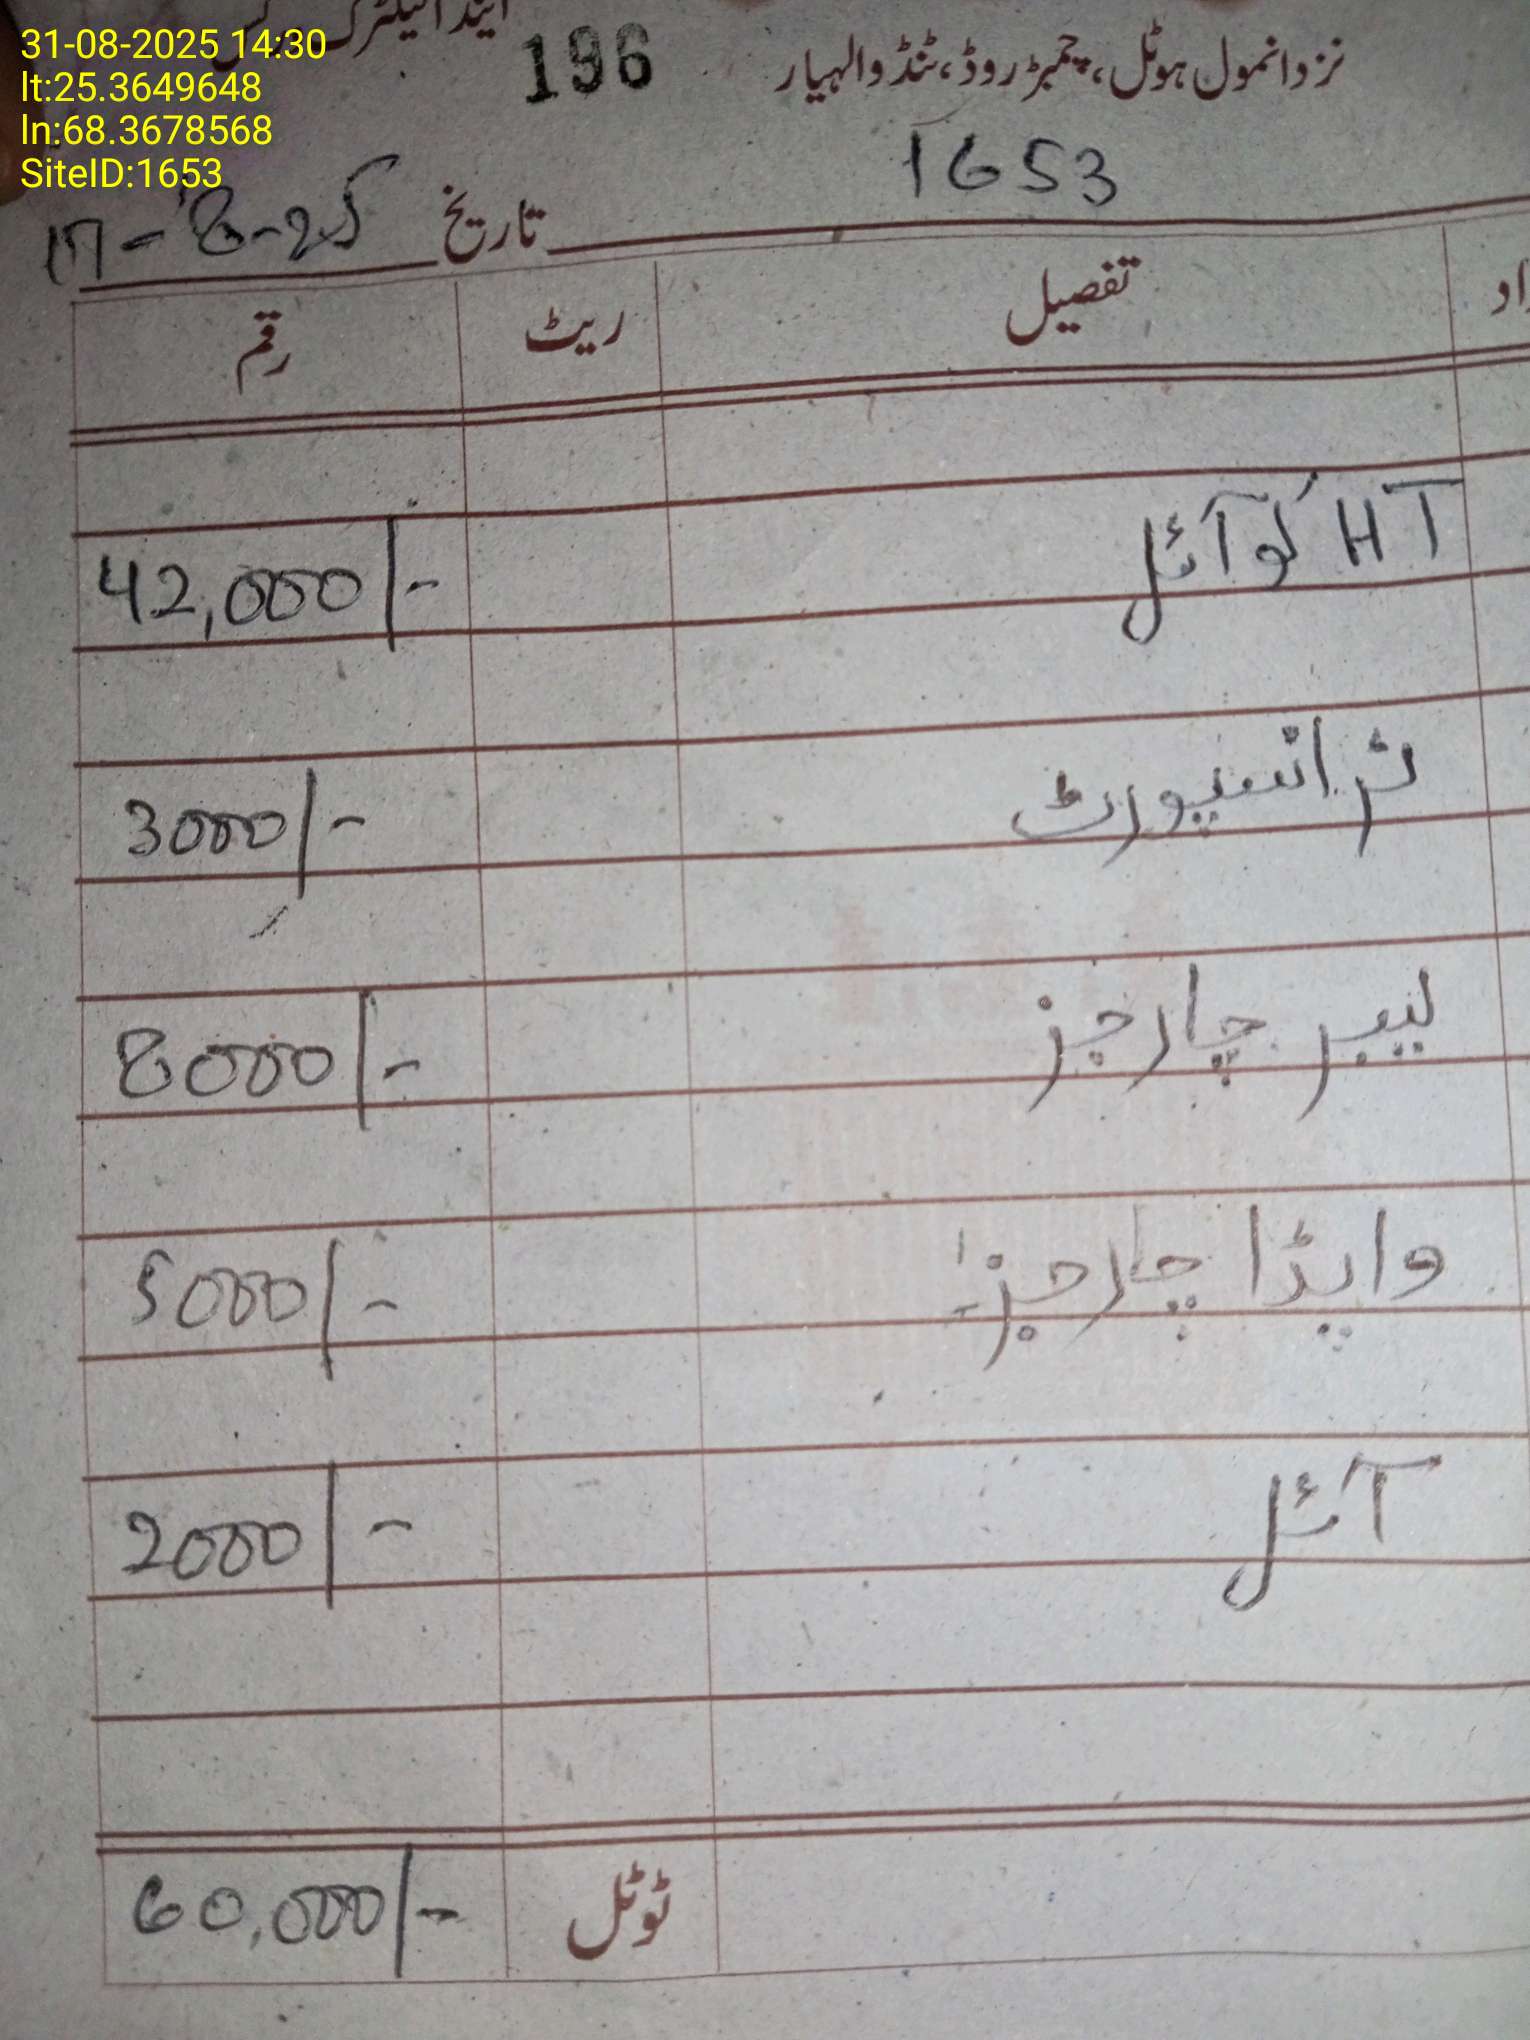 31-08-2025 14:30
lt:25.3649648
ln:68.3678568
SiteID:1653
اینڈ الیکٹرک
196
نزد انمول ہوٹل، چمبڑ روڈ، ٹنڈوالہیار
1653
تاریخ 8-25
تفصیل ریٹ رقم
HT کو آئل 42,000/-
ٹرانسپورٹ 3000/-
لیبر چارجز 8000/-
واپڈا چارجز 5000/-
آئل 2000/-
ٹوٹل 60,000/-